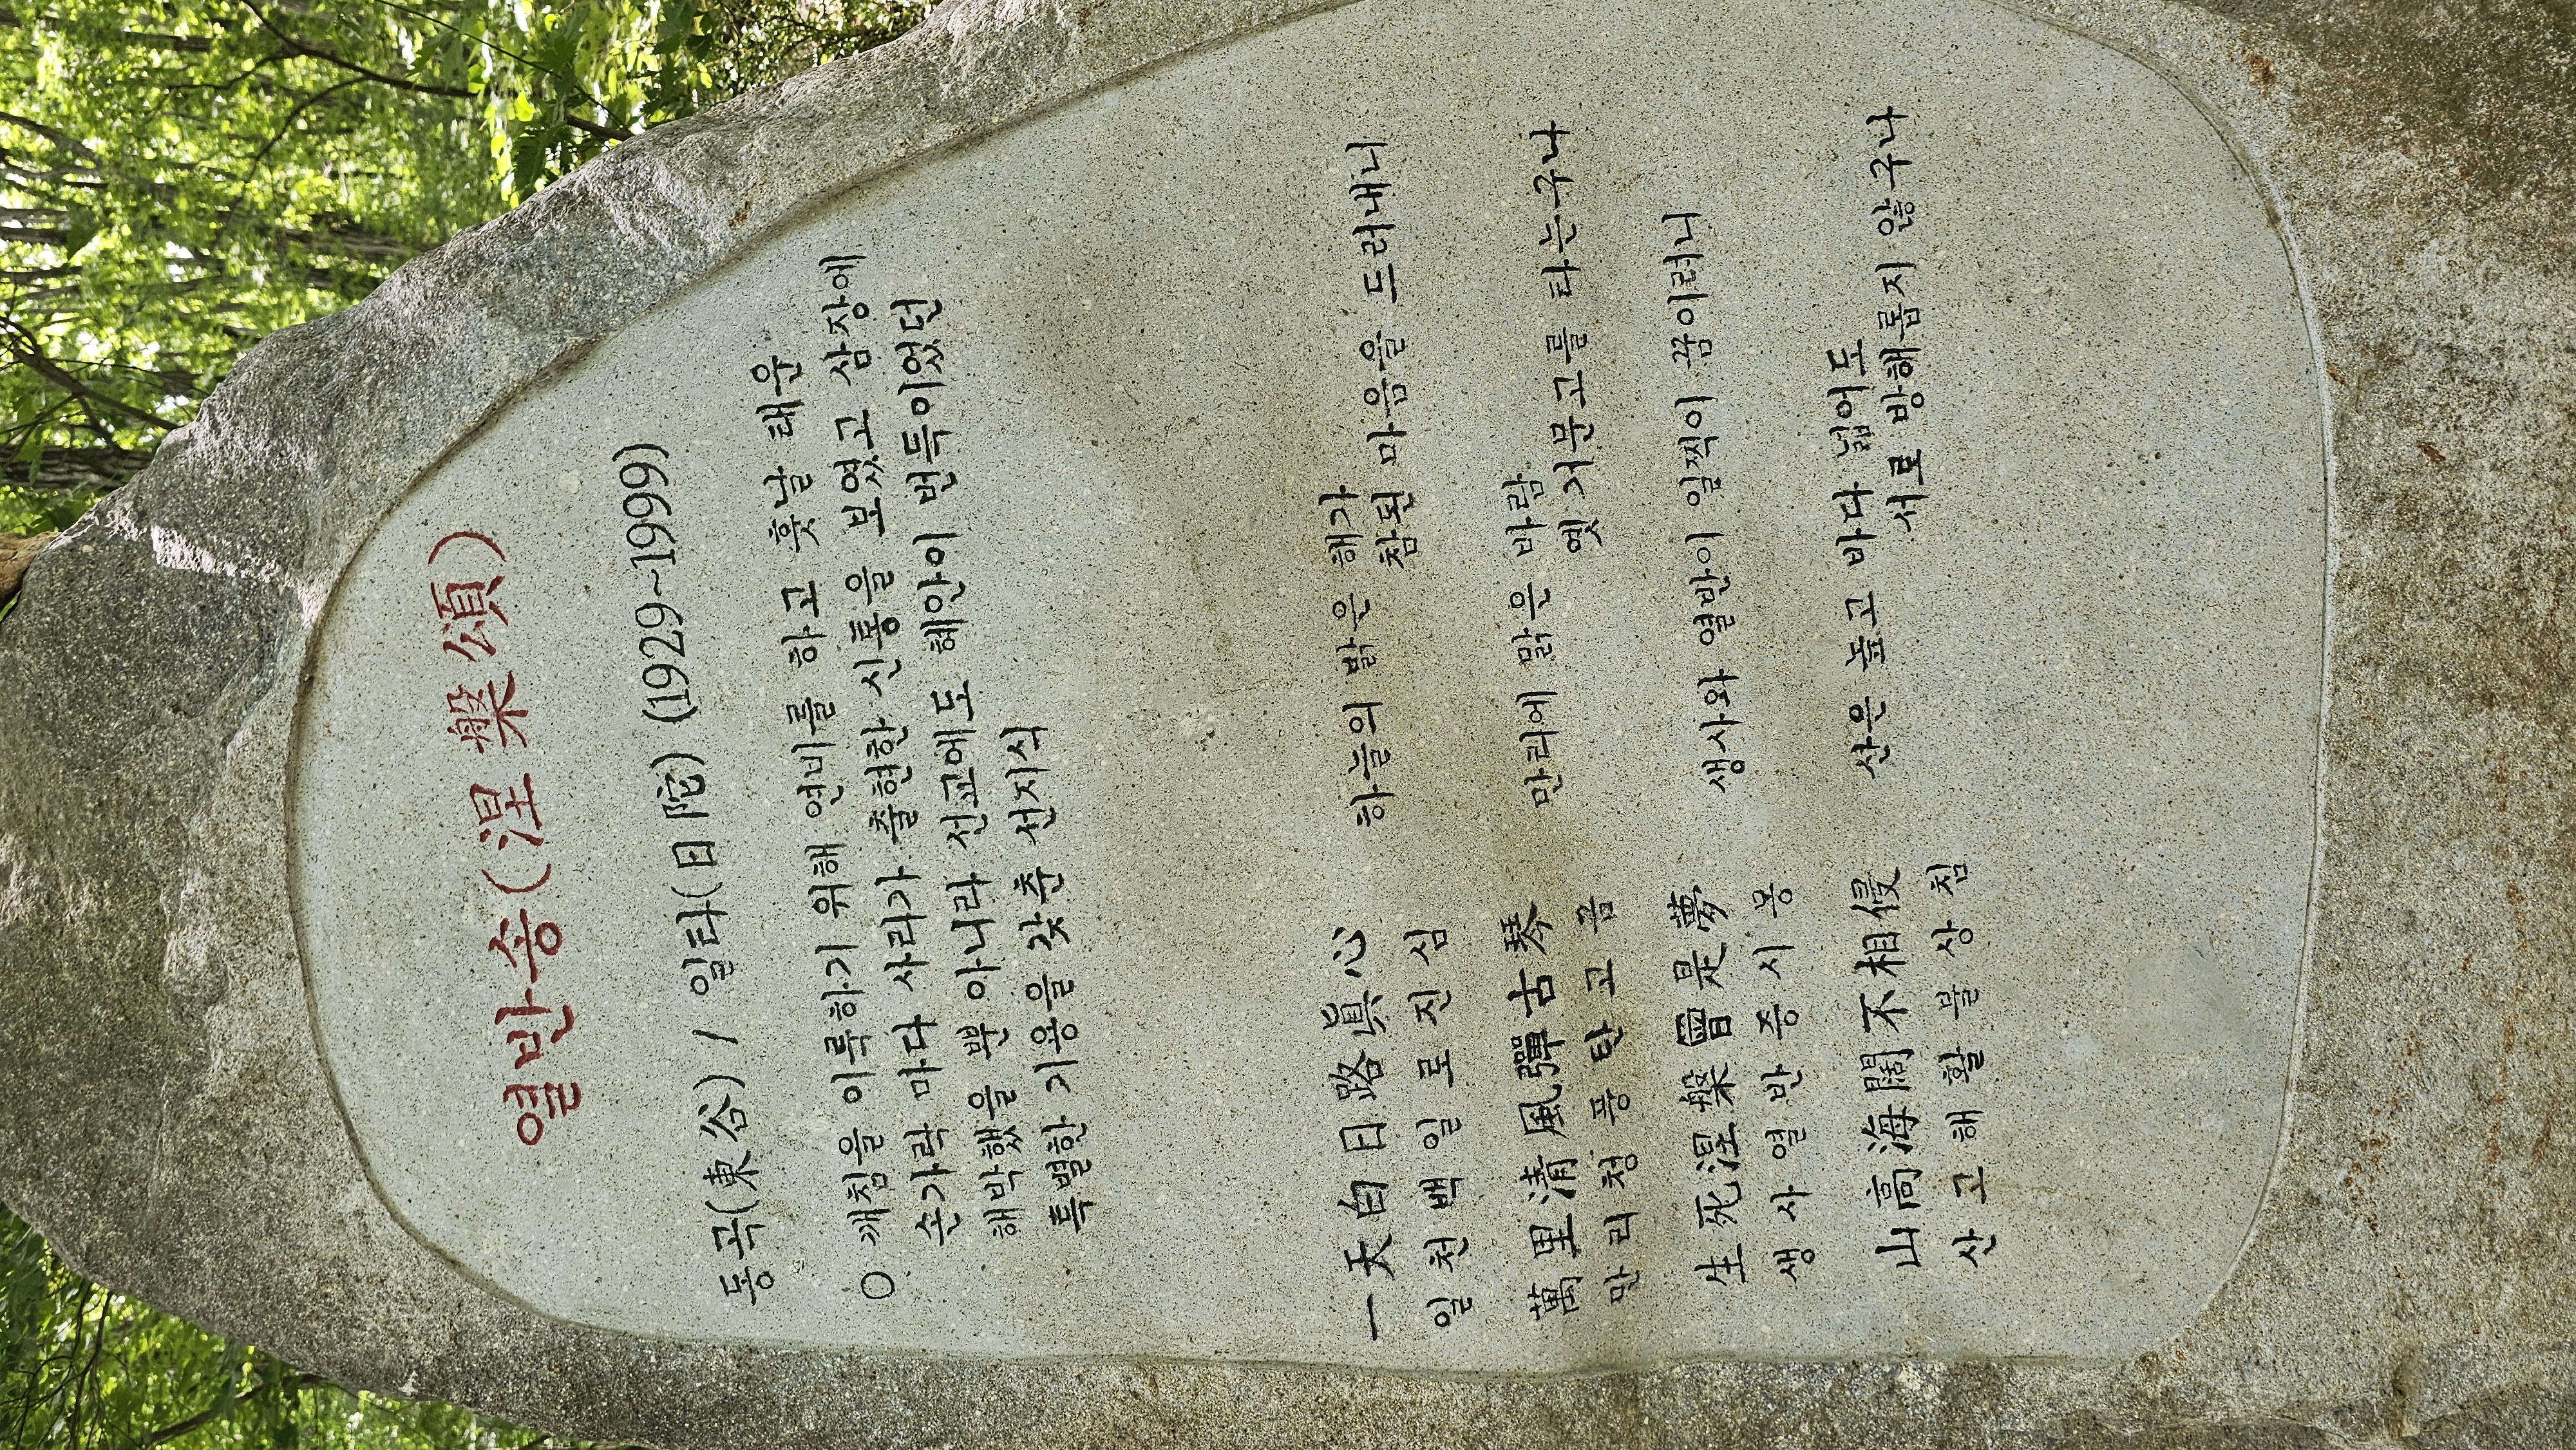 열반송(涅槃頌)
동곡(東谷) / 일타(日陀) (1929~1999)
○ 깨침을 이룩하기 위해 연비를 하고 훗날 태운
손가락 마다 사리가 출현한 신통을 보였고 삼장에
해박했을 뿐 아니라 선교에도 혜안이 번득이었던
특별한 기용을 갖춘 선지식
一天白日路眞心 하늘의 밝은 해가
일천백일로진심 참된 마음을 드러내니
萬里淸風彈古琴 만리에 맑은 바람
만리청풍탄고금 옛 거문고를 타는구나
生死涅槃曾是夢 생사와 열반이 일찍이 꿈이러니
생사열반증시몽
山高海闊不相侵 산은 높고 바다 넓어도
산고해활불상침 서로 방해롭지 않구나